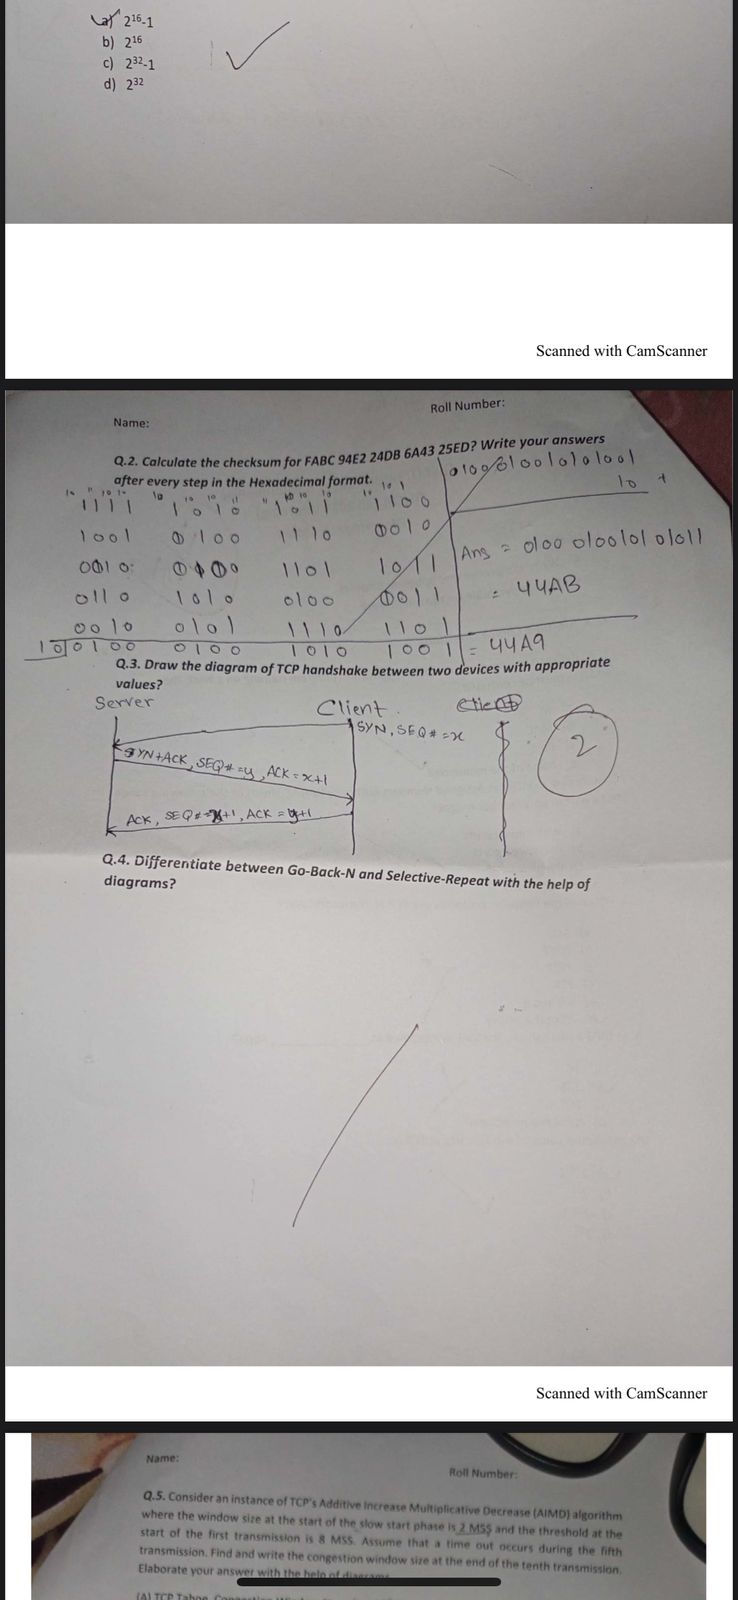 a) 2¹⁶-1
b) 2¹⁶
c) 2³²-1
d) 2³²
Scanned with CamScanner
Roll Number:
Name:
Q.2. Calculate the checksum for FABC 94E2 24DB 6A43 25ED? Write your answers
after every step in the Hexadecimal format.
0100010010101001
10 +
1111 1010 1011 1100
1001 0100 1110 0010
0010 0100 1101 1011
0110 1010 0100 0011
0010 0101 1110 1101
100100 0100 1010 1001 = 44A9
Ans = 0100 010010101011
= 44AB
Q.3. Draw the diagram of TCP handshake between two devices with appropriate
values?
Server Client
SYN, SEQ# = x
2
SYN+ACK, SEQ# = y, ACK = x+1
ACK, SEQ# = x+1, ACK = y+1
Q.4. Differentiate between Go-Back-N and Selective-Repeat with the help of
diagrams?
Scanned with CamScanner
Name:
Roll Number:
Q.5. Consider an instance of TCP's Additive Increase Multiplicative Decrease (AIMD) algorithm
where the window size at the start of the slow start phase is 2 MSS and the threshold at the
start of the first transmission is 8 MSS. Assume that a time out occurs during the fifth
transmission. Find and write the congestion window size at the end of the tenth transmission.
Elaborate your answer with the help of diagrams
(A) TCP Tahoe